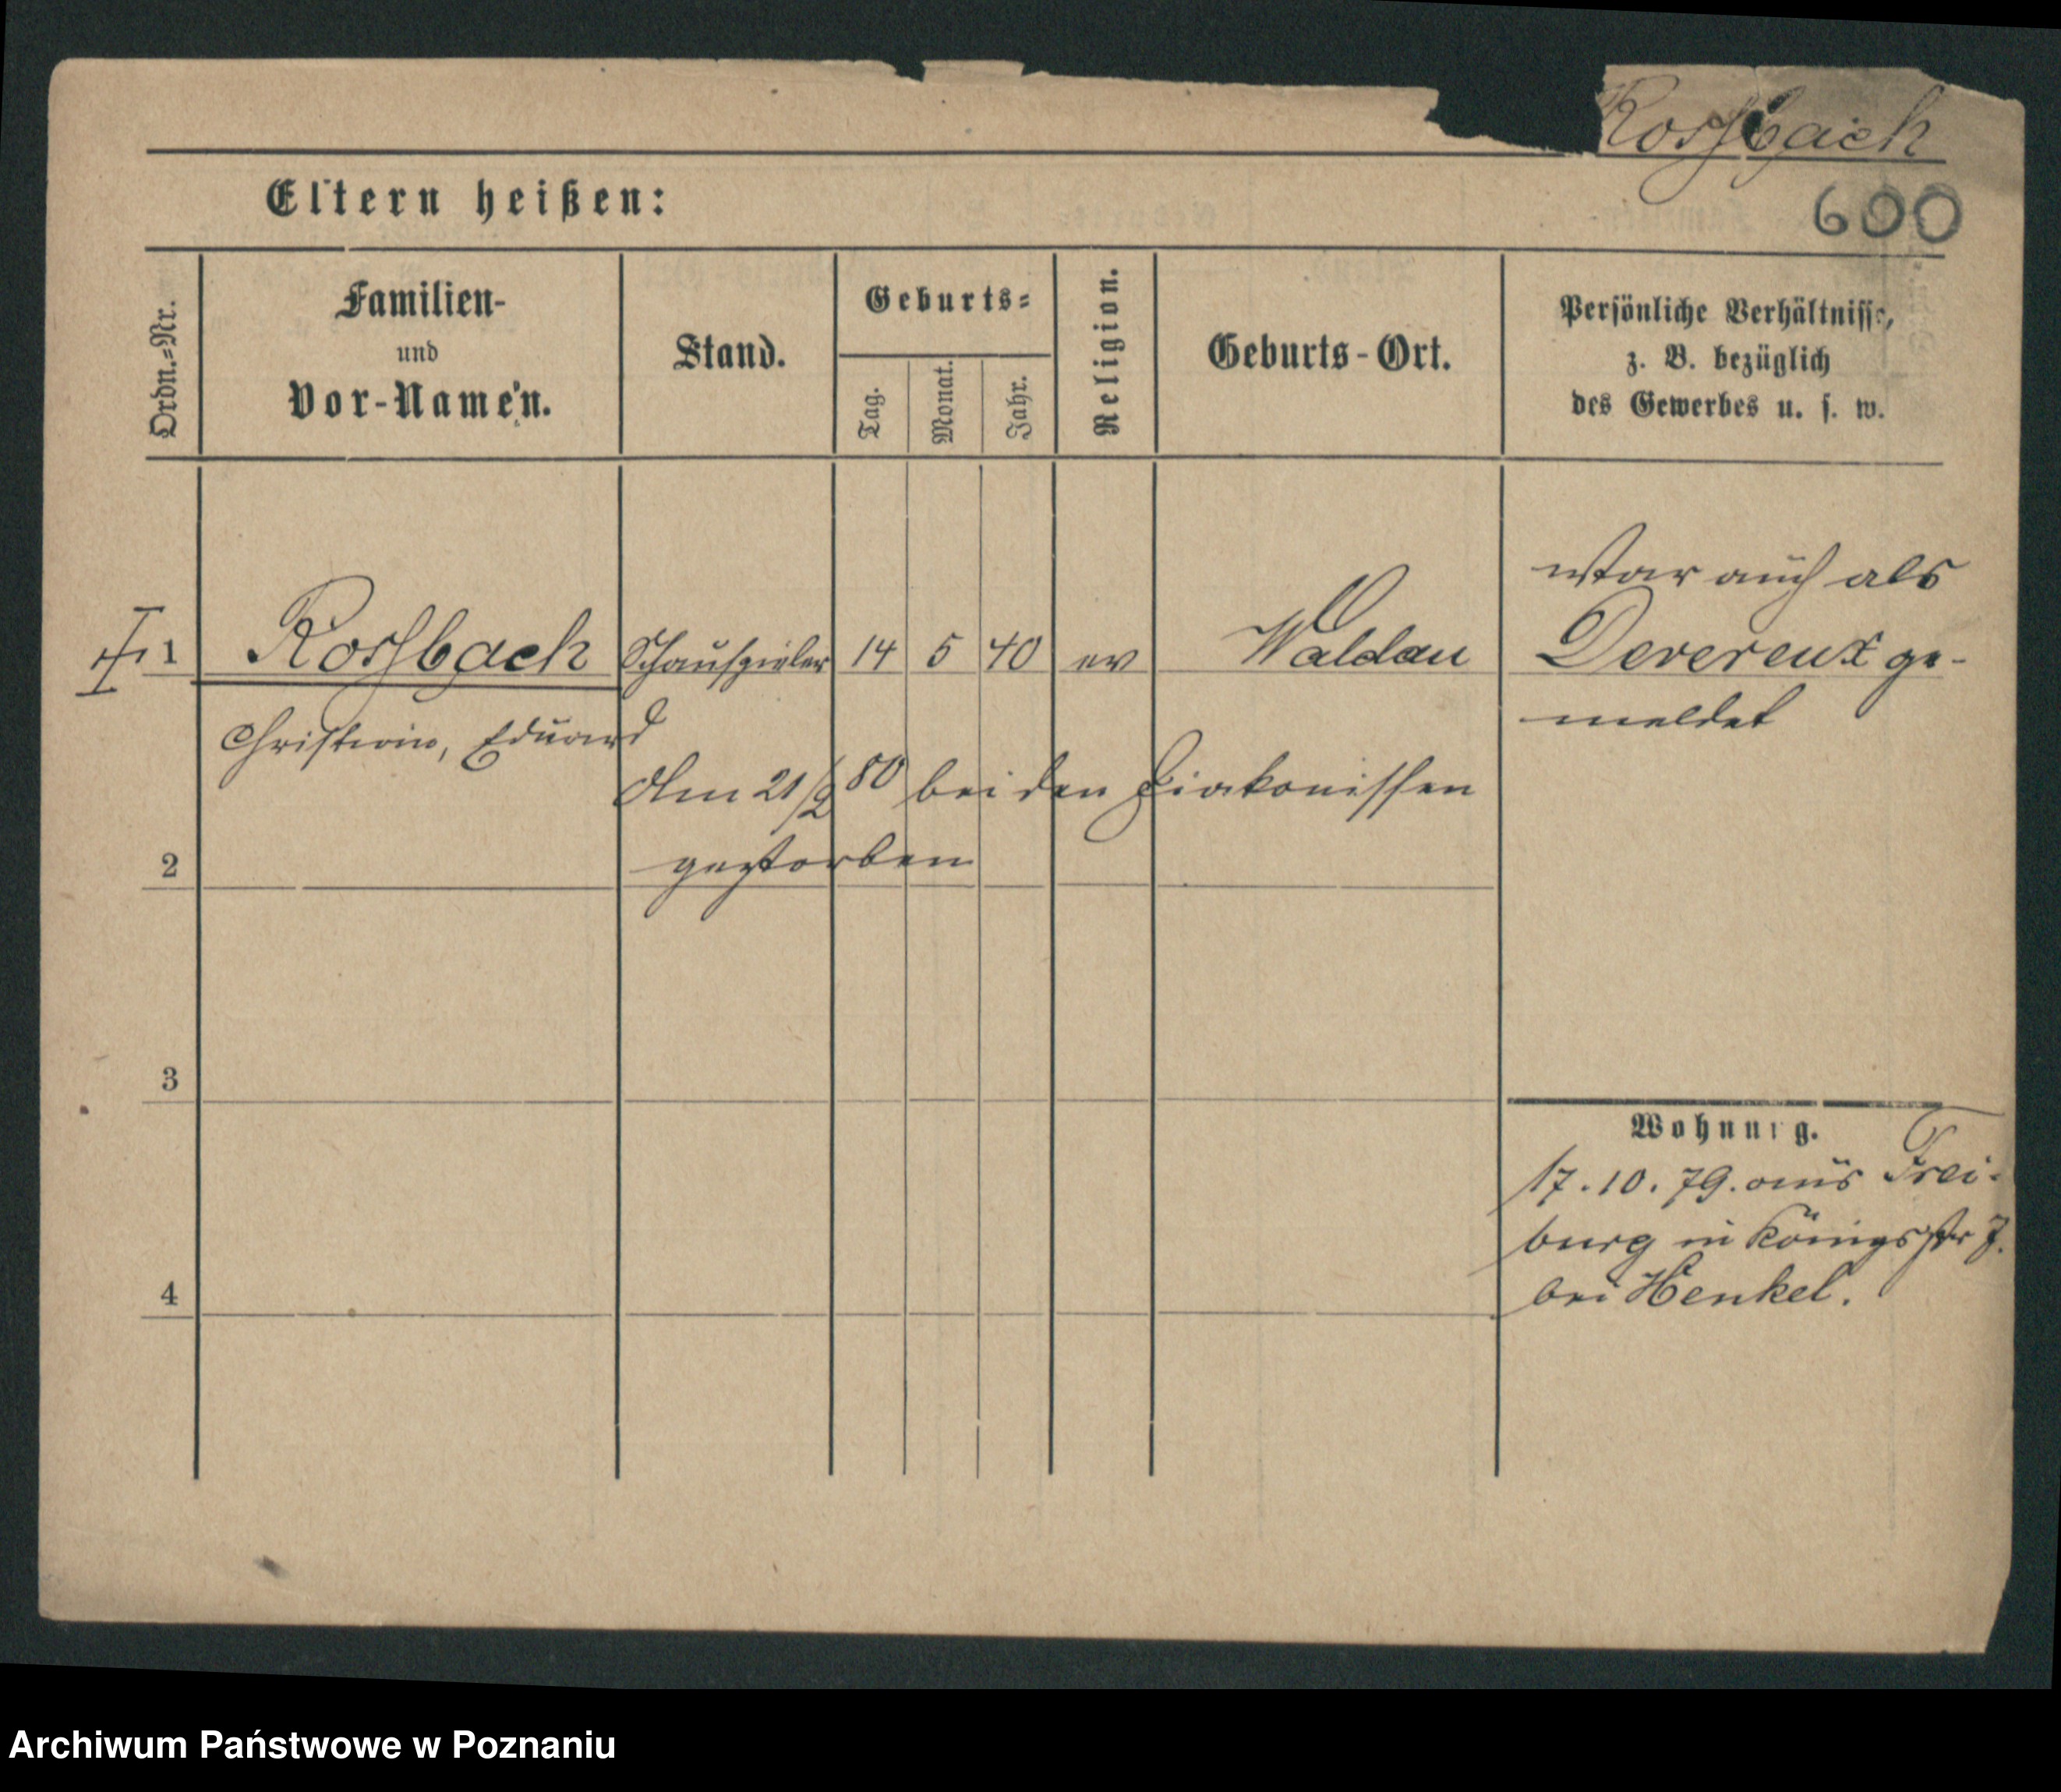 Rossbach
Eltern heißen:
600
Ordn.=Nr.
Familien-
und
Vor-Namen.
Stand.
Geburts=
Tag.
Monat.
Jahr.
Religion.
Geburts-Ort.
Persönliche Verhältnisse,
z. B. bezüglich
des Gewerbes u. s. w.
1 Rossbach Schauspieler 14 5 40 ev Waldau
Christian, Eduard
Am 21/2 80 bei den Diakonissen
gestorben
war auch als
Devereux ge-
meldet
2
3
4
Wohnung.
17.10.79. aus Frei-
burg in Königsstr 7.
bei Henkel.
Archiwum Państwowe w Poznaniu